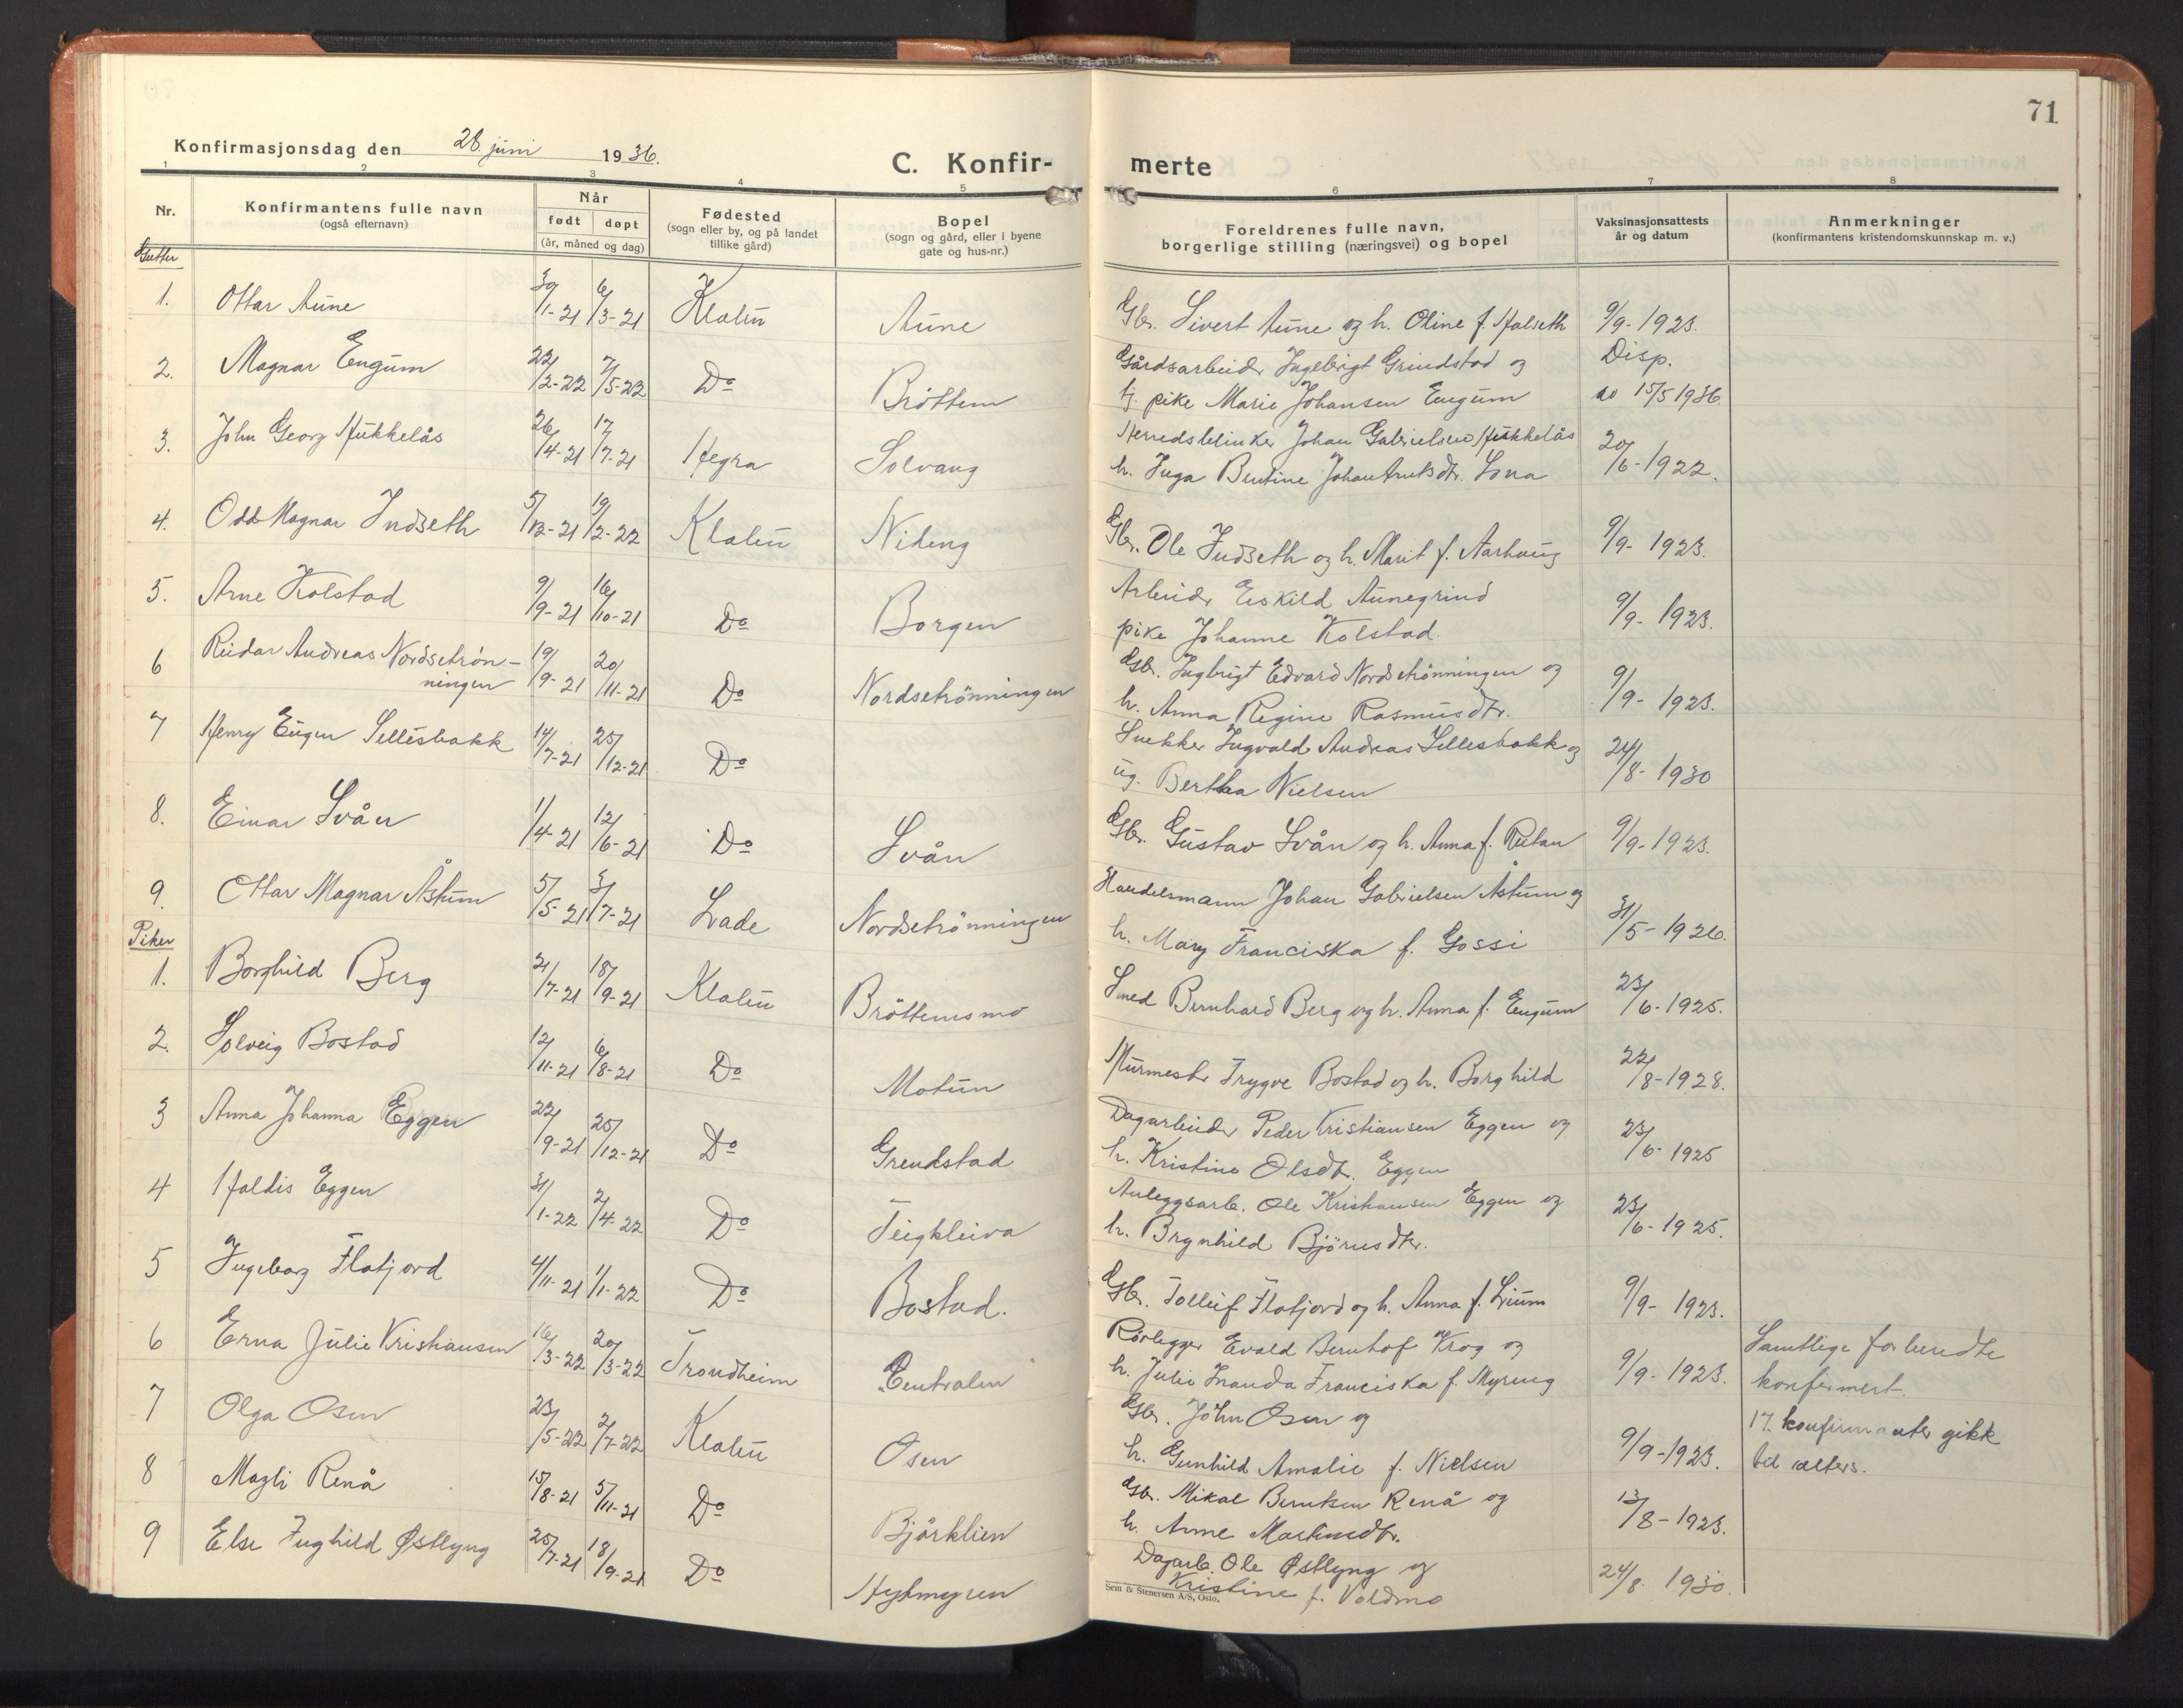 71
Konfirmasjonsdag den 28. juni 1936.
C. Konfir- merte
1 2 3 4 5 6 7 8
Nr.
Konfirmantens fulle navn
(også efternavn)
Når
født døpt
(år, måned og dag)
Fødested
(sogn eller by, og på landet
tillike gård)
Bopel
(sogn og gård, eller i byene
gate og hus-nr.)
Foreldrenes fulle navn,
borgerlige stilling (næringsvei) og bopel
Vaksinasjonsattests
år og datum
Anmerkninger
(konfirmantens kristendomskunnskap m. v.)
Gutter
1. Ottar Aune 30/1-21 6/3-21 Klæbu Aune Gbr. Sivert Aune og h. Oline f. Halseth 9/9-1923.
2. Magnar Engum 22/2-22 7/5-22 Do Bröttem Gårdsarbeider Ingebrigt Grindstad og Disp.
tj. pike Marie Johansen Engum 15/5 1936.
3. John Georg Hukkelås 26/4-21 17/7-21 Hegra Solvang Johan Gabrielsen Hukkelås 20/6-1922.
h. Inga Bentine Johan Lona
4. Odd Magnar Indseth 5/12-21 19/2-22 Klæbu Nideng Gbr. Ole Indseth og h. Marit f. Aarhaug 9/9-1923.
5. Arne Kolstad 9/9-21 16/10-21 Do Borgen Arbeider Eskild Aunegrind 9/9-1923.
pike Johanne Kolstad
6 Reidar Andreas Nordsetrön- 19/9-21 20/11-21 Do Nordsetrönningen Gbr. Ingbrigt Edvard Nordsetrönningen og 9/9-1923.
ningen
h. Anna Regine Rasmusdtr.
7 Henry Eugen Sellesbakk 14/7-21 25/12-21 Do Snekker Ingvald Andreas Sellesbakk og 24/8-1930
ug. Bertha Nielsen
8. Einar Svån 1/4-21 12/6-21 Do Svån Gbr. Gustav Svån og h. Anna f. Reitan 9/9-1923.
9. Ottar Magnar Åstum 5/5-21 3/7-21 Lade Nordsetrönningen Handelsmann Johan Gabrielsen Åstum og 31/5-1926.
h. Mary Franciska f. Gossi
Piker
1. Borghild Berg 2/7-21 18/9-21 Klæbu Bröttemsmo Smed Bernhard Berg og h. Anna f. Engum 23/6-1925.
2. Solveig Bostad 12/11-21 6/8-21 Do Motun Murmester Trygve Bostad og h. Borghild 22/8-1928.
3 Anna Johanna Eggen 22/9-21 25/12-21 Do Grendstad Dagarbeider Peder Kristiansen Eggen og 23/6-1925
h. Kristine Olsdtr. Eggen
4 Haldis Eggen 31/1-22 2/4-22 Do Teigkleiva Anleggsarb. Ole Kristiansen Eggen og 23/6-1925.
h. Brynhild Björnsdtr.
5 Ingeborg Flatjord 4/11-21 1/1-22 Do Bostad. Gbr. Tolleif Flatjord og h. Anna f. Lium 9/9-1923.
6 Erna Julie Kristiansen 16/3-22 20/3-22 Trondheim Centralen Rörlegger Evald Bernhof Krog og 9/9-1923. Samtlige forberedte
h. Julie Franciska f. Myreng konfirmert.
7 Olga Osen 23/5-22 2/7-22 Klæbu Osen Gbr. John Osen og 9/9-1923. 17. konfirmanter gikk
h. Gunhild Amalie f. Nielsen til alters.
8 Magli Renå 15/8-21 5/11-21 Do Björklien Gbr. Mikal Berntsen Renå og 13/8-1923.
h. Anne Martinsdtr.
9 Else Inghild Østlyng 25/7-21 18/9-21 Do Hyttmyren Dagarb. Ole Østlyng og 24/8 1930.
Kristine f. Voldmo
Sem & Stenersen A/S, Oslo.